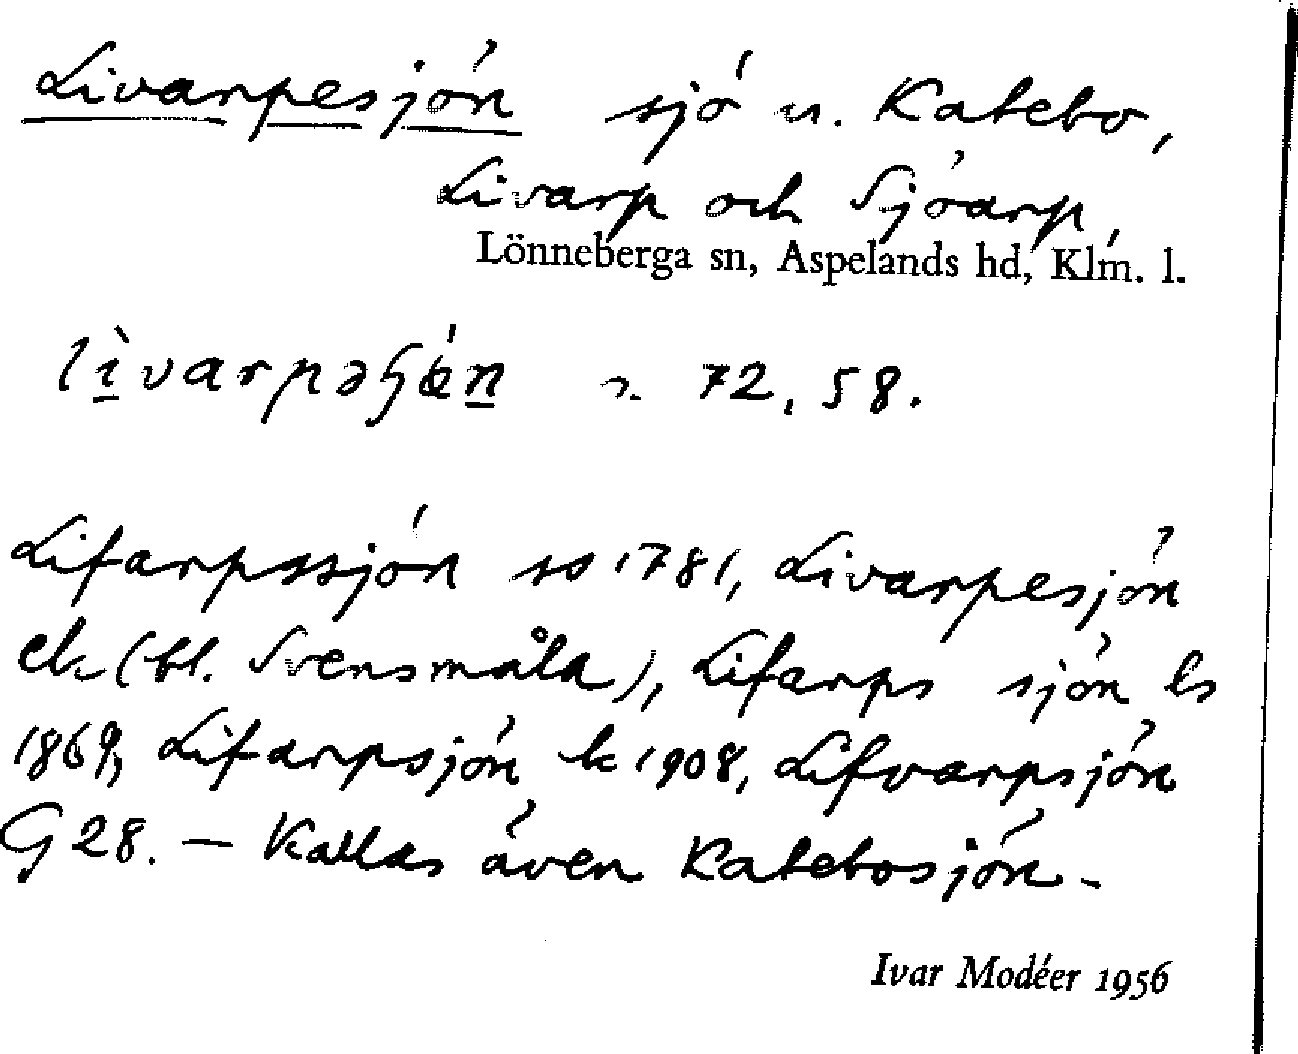 Livarpesjön sjö n. Katebo,
Livarp och Sjöarp,
Lönneberga sn, Aspelands hd, Klm. l.
72, 58.
Lifarpssjön so 1781, Livarpesjön
ek (bl. Svensmåla), Lifarps sjön ls
1869, Lifarpsjön k 1908, Lifvarpsjön
G 28. — Kallas även Katebosjön.
Ivar Modéer 1956